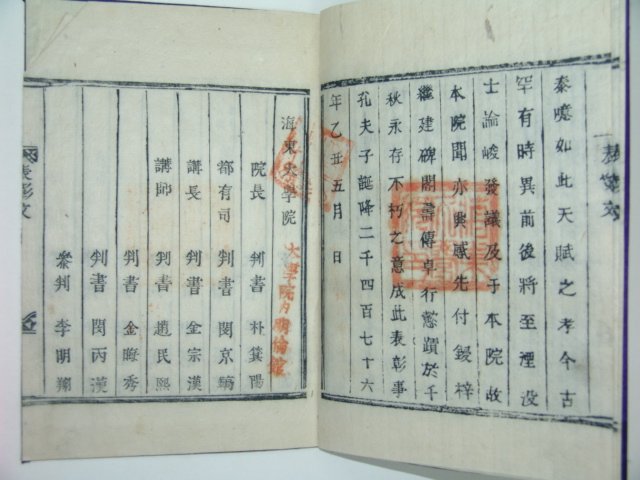 表彰文
泰噫如此天賦之孝今古
罕有時異前後將至湮没
士論峻發議及于本院故
本院聞亦興感先付鋟梓
繼建碑閣壽傳卓行懿蹟於千
秋永存不朽之意成此表彰事
孔夫子誕降二千四百七十六
年乙丑五月　日
海東大學院
大學院內明倫館
院長　判書　朴箕陽
都有司　判書　閔京鎬
講長　判書　金宗漢
講師　判書　趙民熙
判書　金晦秀
判書　閔丙漢
參判　李明翔
表彰文